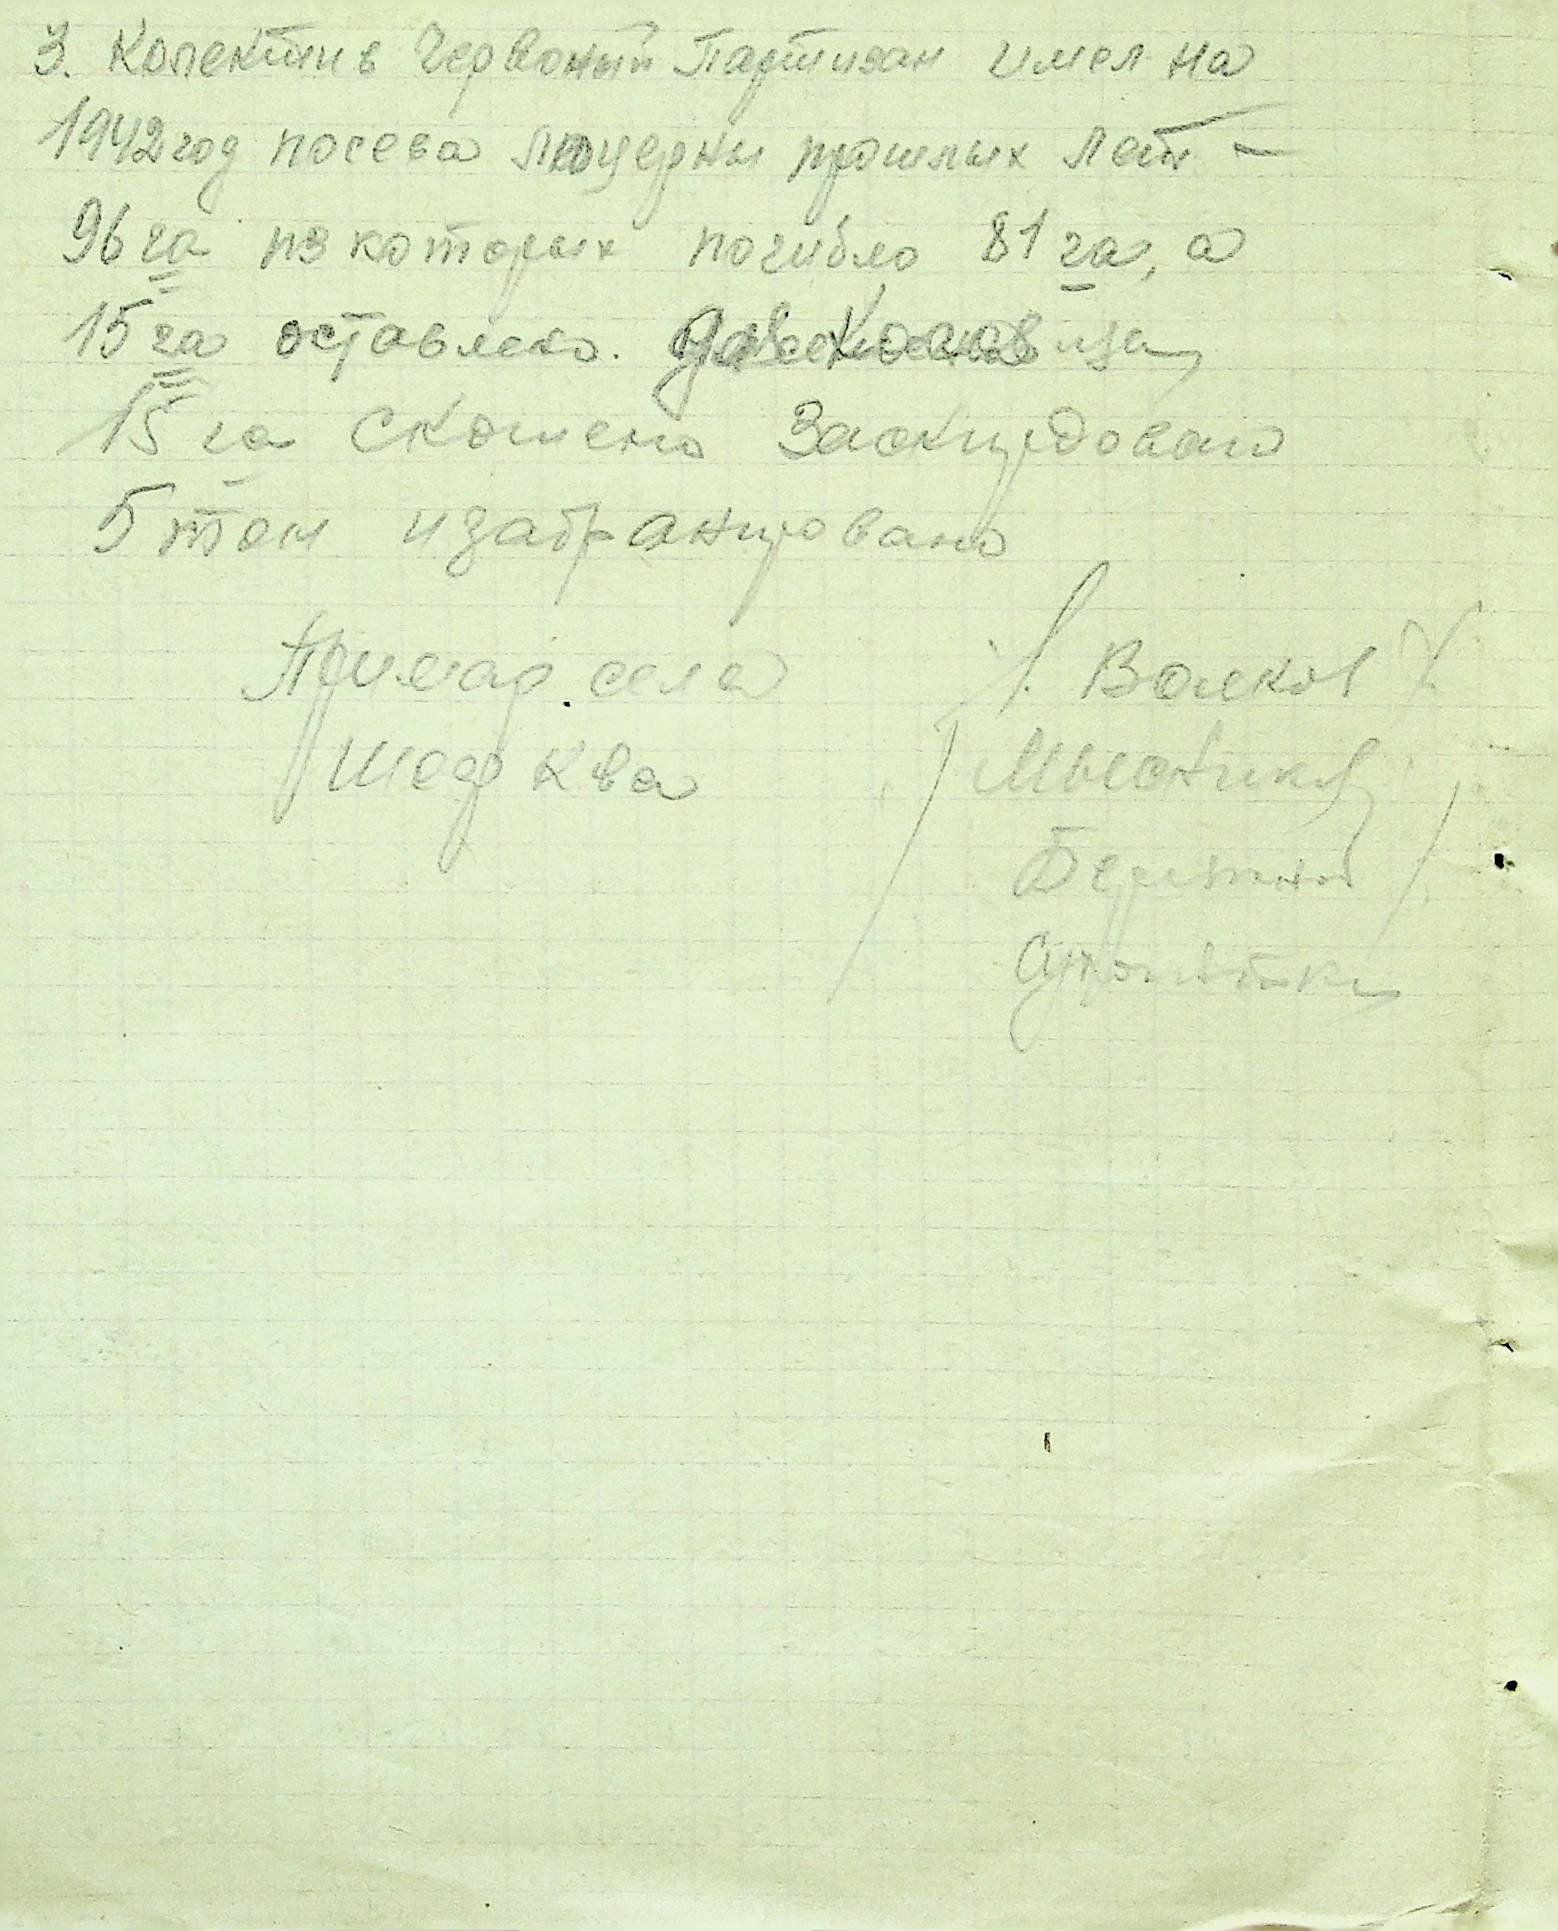 3. Колектив Червоный Партизан имел на
1942 год посева люцерны прошлых лет —
96 га из которых погибло 81 га, а
15 га оставлено.
15 га скошено Заскирдовано
5 тон и забранировано
Примар села
Шардква
Волков